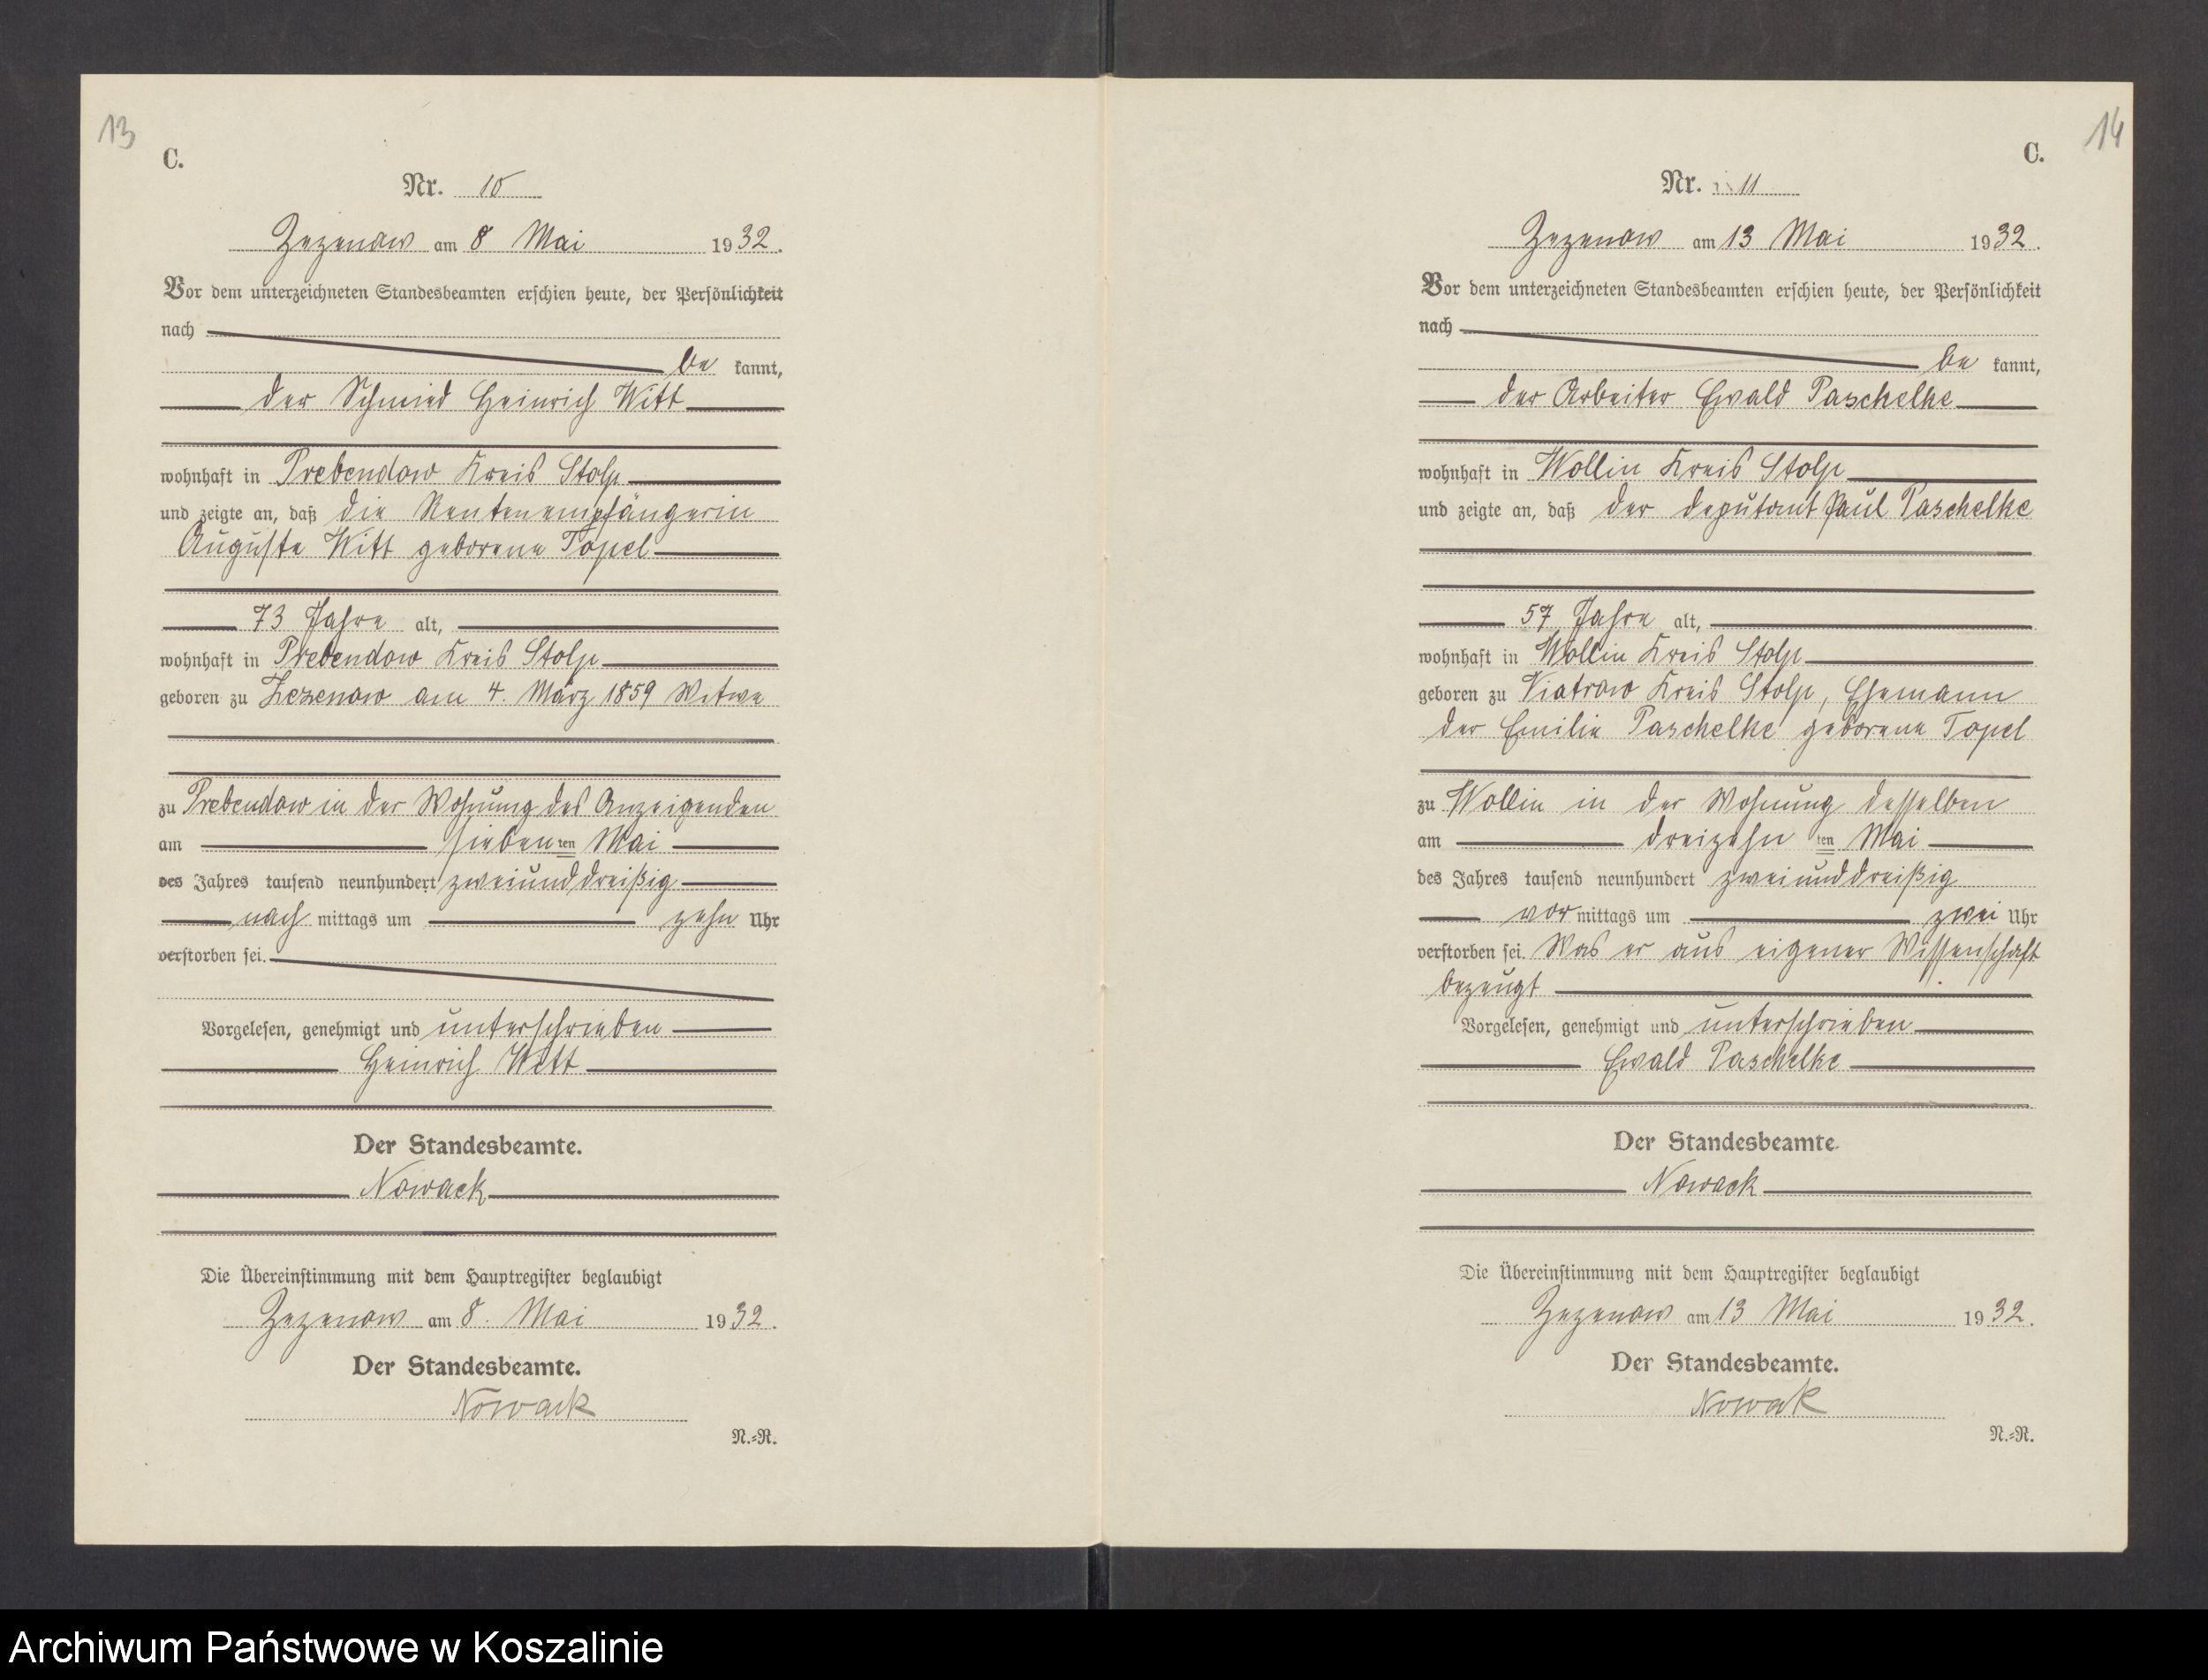 13
C.
Nr. 10
Zezenow am 8 Mai 1932.
Vor dem unterzeichneten Standesbeamten erschien heute, der Persönlichkeit
nach
be kannt,
der Schmied Heinrich Witt
wohnhaft in Prebendow Kreis Stolp
und zeigte an, daß die Rentenempfängerin
Auguste Witt geborene Topel
73 Jahre alt,
wohnhaft in Prebendow Kreis Stolp
geboren zu Zezenow am 4. März 1859 Witwe
zu Prebendow in der Wohnung des Anzeigenden
am siebenten Mai
des Jahres tausend neunhundert zweiunddreißig
nach mittags um zehn Uhr
verstorben sei.
Vorgelesen, genehmigt und unterschrieben
Heinrich Witt
Der Standesbeamte.
Nowack
Die Übereinstimmung mit dem Hauptregister beglaubigt
Zezenow am 8. Mai 1932.
Der Standesbeamte.
Nowack
N.=R.
14
C.
Nr. 11
Zezenow am 13 Mai 1932.
Vor dem unterzeichneten Standesbeamten erschien heute, der Persönlichkeit
nach
be kannt,
der Arbeiter Ewald Paschelke
wohnhaft in Wollin Kreis Stolp
und zeigte an, daß der Deputant Paul Paschelke
57 Jahre alt,
wohnhaft in Wollin Kreis Stolp
geboren zu Viatrow Kreis Stolp, Ehemann
der Emilie Paschelke geborene Topel
zu Wollin in der Wohnung desselben
am dreizehn ten Mai
des Jahres tausend neunhundert zweiunddreißig
vor mittags um zwei Uhr
verstorben sei. Was er aus eigener Wissenschaft
bezeugt
Vorgelesen, genehmigt und unterschrieben
Ewald Paschelke
Der Standesbeamte.
Nowack
Die Übereinstimmung mit dem Hauptregister beglaubigt
Zezenow am 13 Mai 1932.
Der Standesbeamte.
Nowak
N.=R.
Archiwum Państwowe w Koszalinie